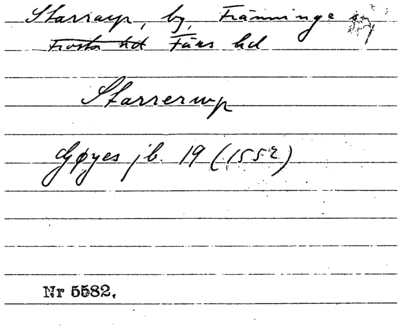 Starrarp, by, Fränninge sn
Frosta hd Färs hd
Starrerup
Gøyes jb. 19 (1552)
Nr 5582.